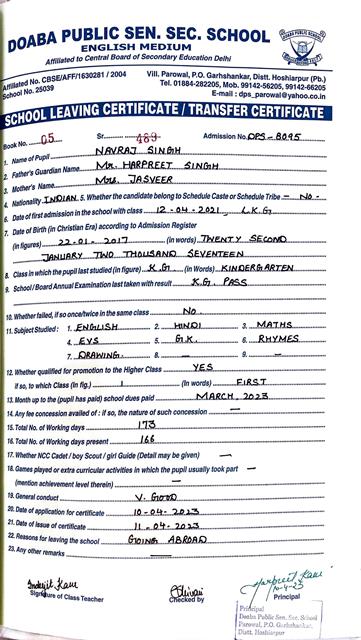 DOABA PUBLIC SEN. SEC. SCHOOL
ENGLISH MEDIUM
Affiliated to Central Board of Secondary Education Delhi
Affiliated No. CBSE/AFF/1630281 / 2004
School No. 25039
Vill. Parowal, P.O. Garhshankar, Distt. Hoshiarpur (Pb.)
Tel. 01884-282205, Mob. 99142-56205, 99142-66205
E-mail : dps_parowal@yahoo.co.in
SCHOOL LEAVING CERTIFICATE / TRANSFER CERTIFICATE
Book No. 05 Sr. 489 Admission No. DPS-8095
1. Name of Pupil NAVRAJ SINGH
2. Father's/Guardian Name MR. HARPREET SINGH
3. Mother's Name MRS. JASVEER
4. Nationality INDIAN 5. Whether the candidate belong to Schedule Caste or Schedule Tribe - NO -
6. Date of first admission in the school with class 12-04-2021, L.K.G.
7. Date of Birth (in Christian Era) according to Admission Register
(in figures) 22-01-2017 (in words) TWENTY SECOND
JANUARY TWO THOUSAND SEVENTEEN
8. Class in which the pupil last studied (in figure) K.G. (in Words) KINDERGARTEN
9. School / Board Annual Examination last taken with result K.G. PASS
10. Whether failed, if so once/twice in the same class NO.
11. Subject Studied : 1. ENGLISH 2. HINDI 3. MATHS
4. EVS 5. G.K. 6. RHYMES
7. DRAWING. 8. — 9. —
12. Whether qualified for promotion to the Higher Class YES
If so, to which Class (in fig.) I (in Words) FIRST
13. Month up to the (pupil has paid) school dues paid MARCH, 2023
14. Any fee concession availed of : if so, the nature of such concession —
15. Total No. of Working days 173
16. Total No. of Working days present 166
17. Whether NCC Cadet / boy Scout / girl Guide (Detail may be given) —
18. Games played or extra curricular activities in which the pupil usually took part —
(mention achievement level therein) —
19. General conduct V. GOOD
20. Date of application for certificate 10-04-2023
21. Date of issue of certificate 11-04-2023
22. Reasons for leaving the school GOING ABROAD
23. Any other remarks —
Inderjit Kaur
Signature of Class Teacher
Checked by
Harpreet Kaur
Principal
Principal
Doaba Public Sen. Sec. School
Parowal, P.O. Garhshankar,
Distt. Hoshiarpur